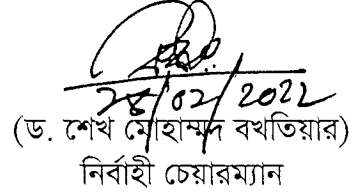 28/02/2022
(ড. শেখ মোহাম্মদ বখতিয়ার)
নির্বাহী চেয়ারম্যান